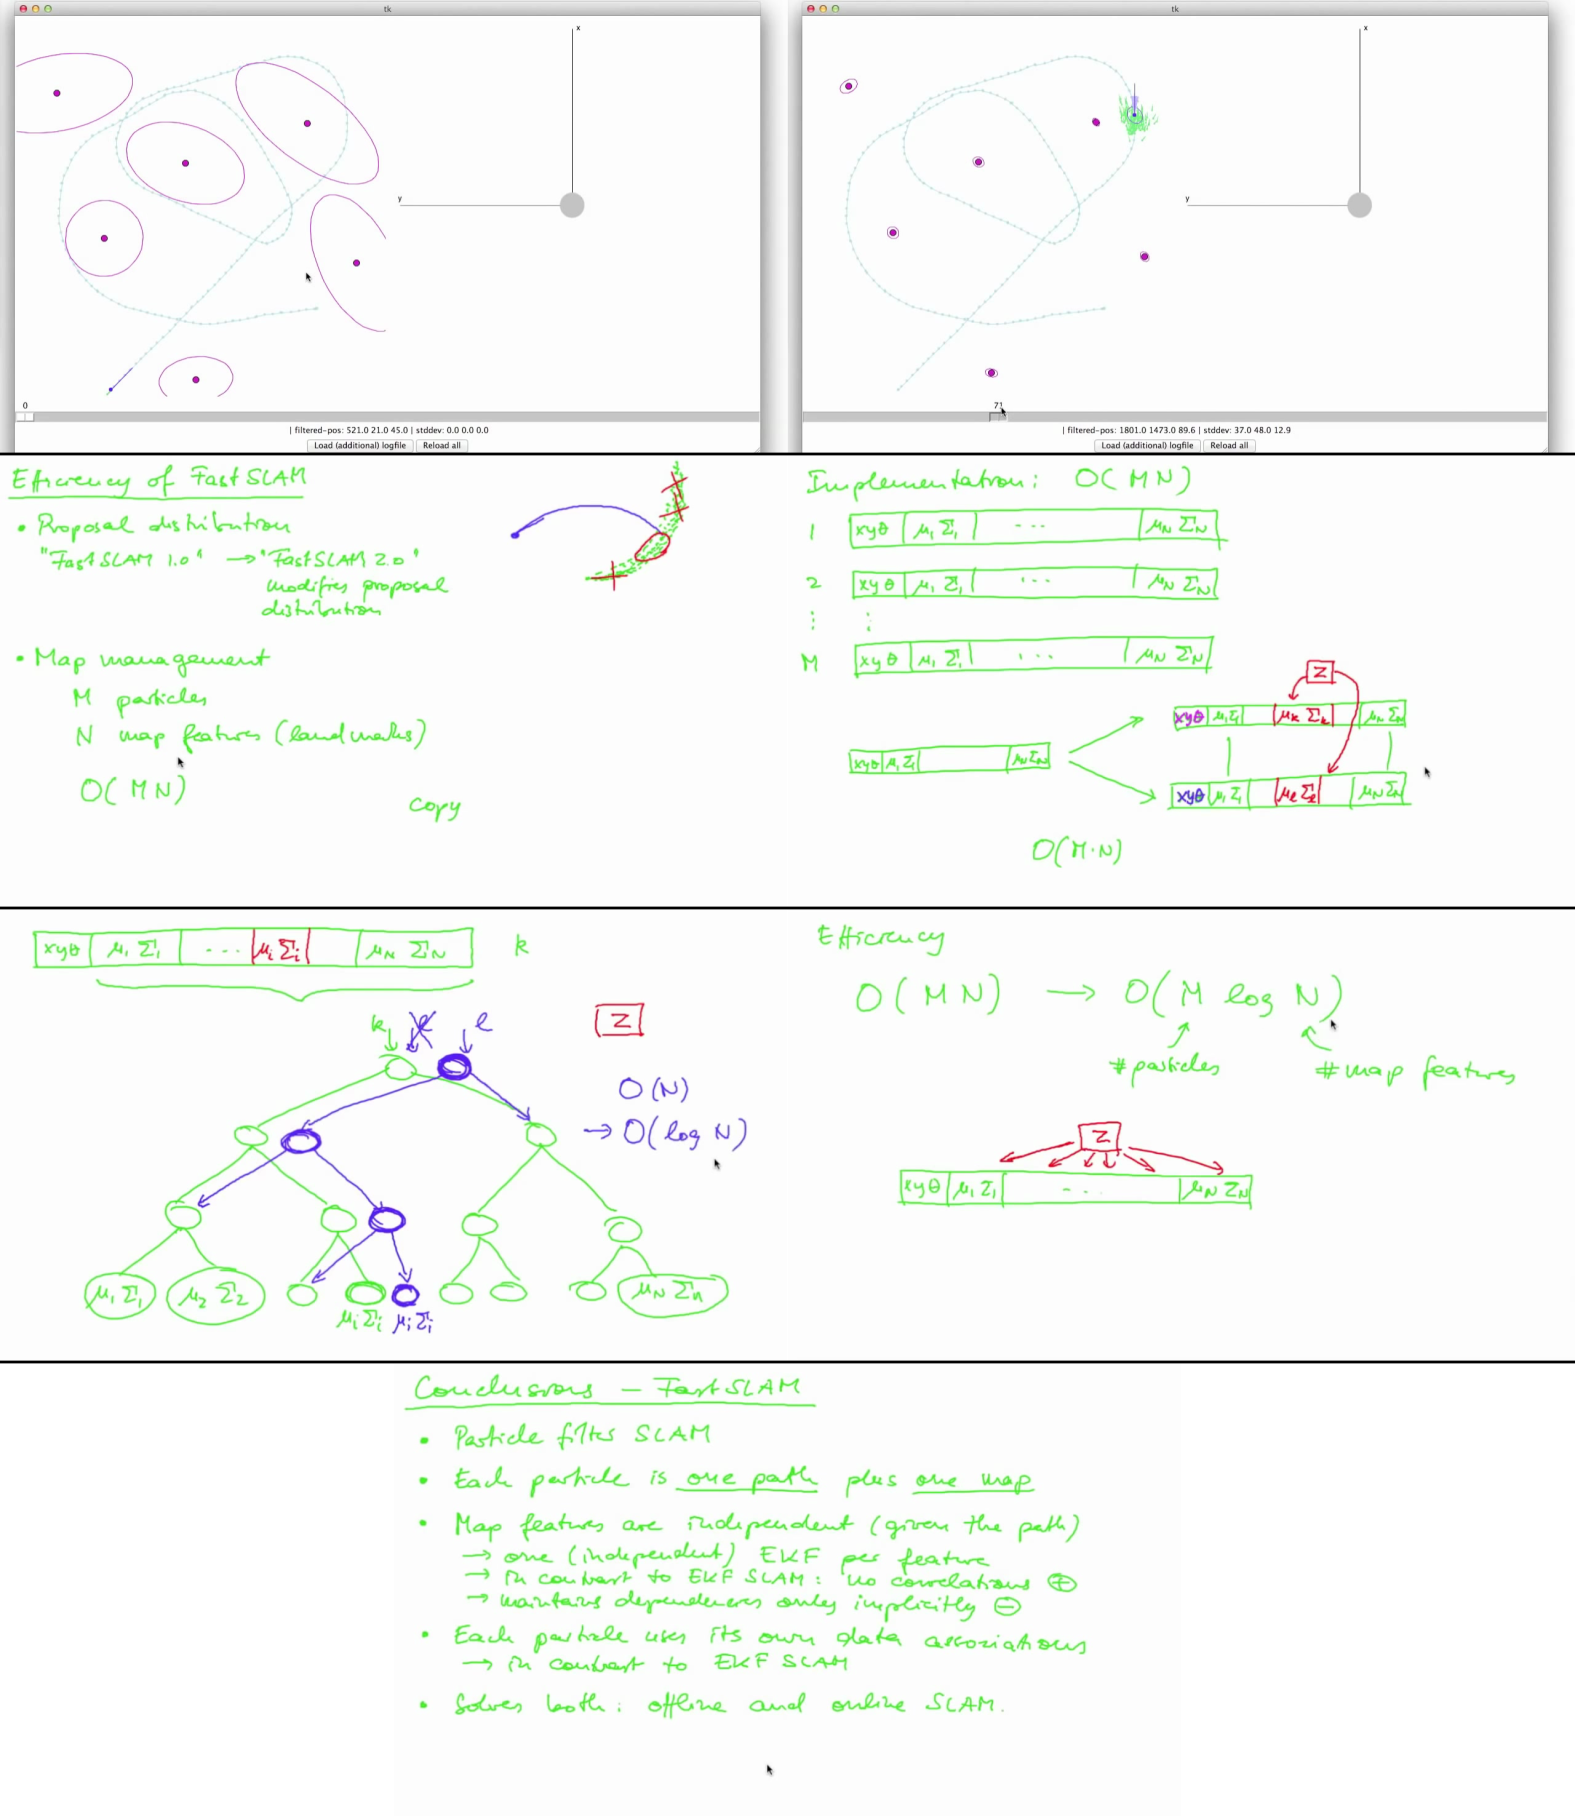 tk
x
y
0
| filtered-pos: 521.0 21.0 45.0 | stddev: 0.0 0.0 0.0
Load (additional) logfile Reload all
tk
x
y
71
| filtered-pos: 1801.0 1473.0 89.6 | stddev: 37.0 48.0 12.9
Load (additional) logfile Reload all
Efficiency of FastSLAM
• Proposal distribution
"FastSLAM 1.0" → "FastSLAM 2.0"
modifies proposal
distribution
• Map management
M particles
N map features (landmarks)
O(MN)
copy
Implementation: O(MN)
1 xyθ μ₁ Σ₁ ... μN ΣN
2 xyθ μ₁ Σ₁ ... μN ΣN
⋮ ⋮
M xyθ μ₁ Σ₁ ... μN ΣN
Z
xyθ μ₁Σ₁ μk Σk μN ΣN
xyθ μ₁Σ₁ μNΣN
xyθ μ₁Σ₁ μℓ Σℓ μNΣN
O(M·N)
xyθ μ₁ Σ₁ ... μi Σi μN ΣN k
k ℓ ℓ
Z
O(N)
→ O(log N)
μ₁ Σ₁ μ₂ Σ₂ μN Σn
μi Σi μi Σi
Efficiency
O(MN) → O(M log N)
#particles #map features
Z
xyθ μ₁ Σ₁ ... μN ΣN
Conclusions – FastSLAM
• Particle filter SLAM
• Each particle is one path plus one map
• Map features are independent (given the path)
→ one (independent) EKF per feature
→ in contrast to EKF SLAM: no correlations ⊕
→ maintains dependences only implicitly ⊖
• Each particle uses its own data associations
→ in contrast to EKF SLAM
• Solves both: offline and online SLAM.